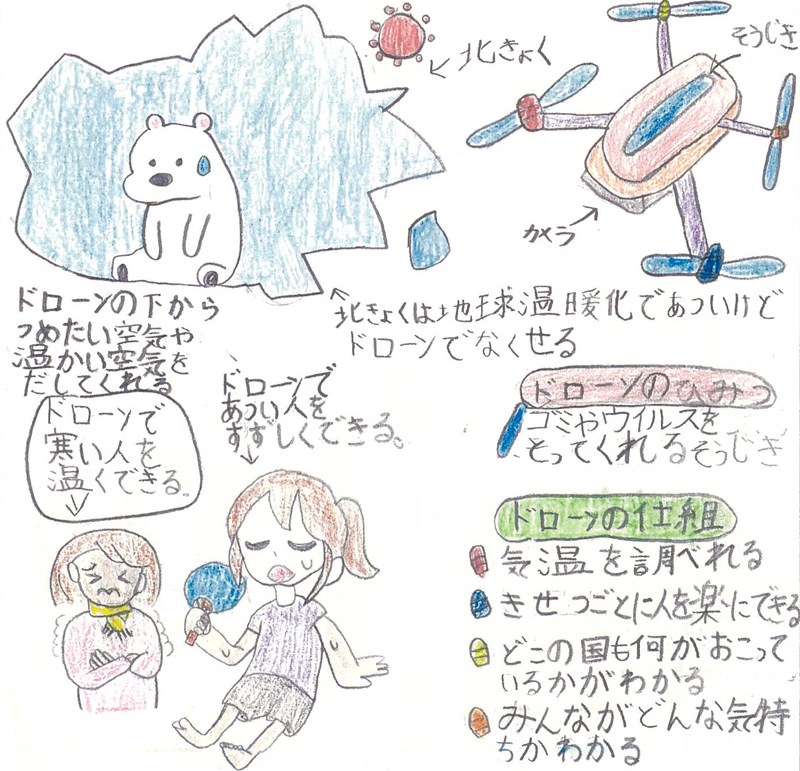 そうじき
北きょく
カメラ
北きょくは地球温暖化であついけど
ドローンでなくせる
ドローンの下から
つめたい空気や
温かい空気を
だしてくれる
ドローンで
寒い人を
温くできる。
ドローンで
あつい人を
すずしくできる。
ドローンのひみつ
ゴミやウイルスを
とってくれるそうじき
ドローンの仕組
気温を調べれる
きせつごとに人を楽にできる
どこの国も何がおこって
いるかがわかる
みんながどんな気持
ちかわかる